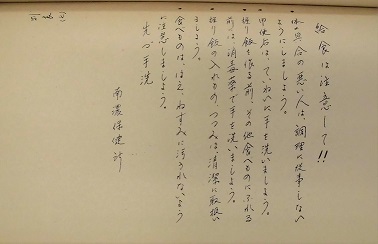 給食は注意して!!
・体の具合の悪い人は、調理に従事しない
ようにしましょう。
・用便后は、ていねいに手を洗いましょう。
・握り飯を作る前、その他食べものにふれる
前には消毒薬で手を洗いましょう。
・握り飯の入れもの、つつみは清潔に取扱い
ましょう。
・食べものは、はえ、ねずみに汚されないよう
に注意しましょう。
先づ手洗
南濃保健所